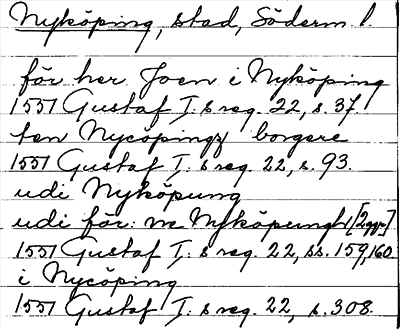 Nyköping, stad, Söderm. l.
för her Joen i Nyköping
1551 Gustaf I:s reg. 22, s. 37.
ten Nycöpingz borgere
1551 Gustaf I:s reg. 22, s. 93.
udi Nyköpung
udi för:ne Nyköpung [2 ggr]
1551 Gustaf I:s reg. 22, ss. 159, 160
i Nycöping
1551 Gustaf I:s reg. 22, s. 308.